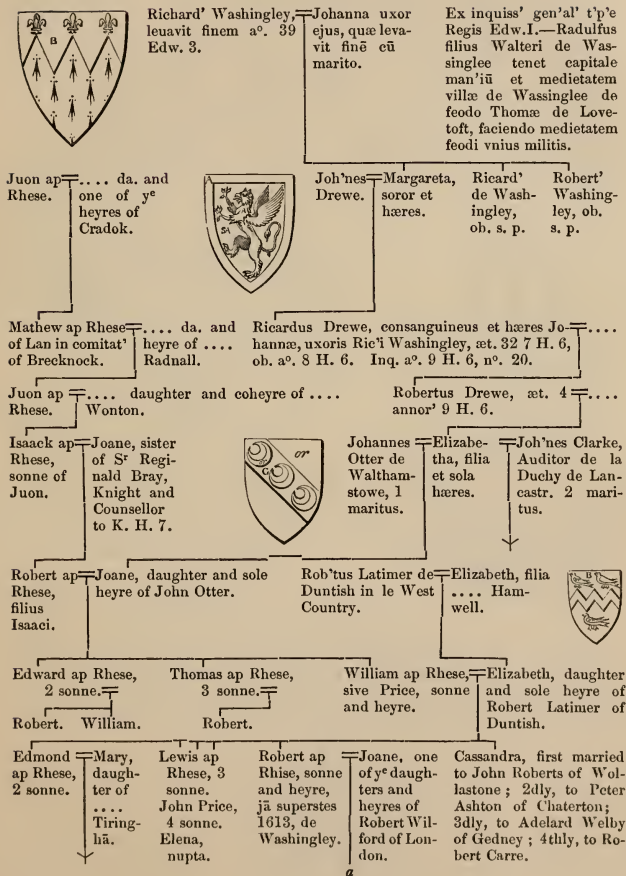 Richard' Washingley,
leuavit finem aº. 39
Edw. 3.
Johanna uxor
ejus, quæ leva-
vit finē cū
marito.
Ex inquiss' gen'al' t'p'e
Regis Edw.I.—Radulfus
filius Walteri de Was-
singlee tenet capitale
man'iū et medietatem
villæ de Wassinglee de
feodo Thomæ de Love-
toft, faciendo medietatem
feodi vnius militis.
B
Juon ap
Rhese.
.... da. and
one of yᵉ
heyres of
Cradok.
SA
Joh'nes
Drewe.
Margareta,
soror et
hæres.
Ricard'
de Wash-
ingley,
ob. s. p.
Robert'
Washing-
ley, ob.
s. p.
Mathew ap Rhese
of Lan in comitat'
of Brecknock.
.... da. and
heyre of ....
Radnall.
Ricardus Drewe, consanguineus et hæres Jo-
hannæ, uxoris Ric'i Washingley, æt. 32 7 H. 6,
ob. aº. 8 H. 6. Inq. aº. 9 H. 6, nº. 20.
....
Juon ap
Rhese.
.... daughter and coheyre of ....
Wonton.
Robertus Drewe, æt. 4
annor' 9 H. 6.
....
Isaack ap
Rhese,
sonne of
Juon.
Joane, sister
of Sʳ Regi-
nald Bray,
Knight and
Counsellor
to K. H. 7.
or
G
Johannes
Otter de
Waltham-
stowe, 1
maritus.
Elizabe-
tha, filia
et sola
hæres.
Joh'nes Clarke,
Auditor de la
Duchy de Lan-
castr. 2 mari-
tus.
Robert ap
Rhese,
filius
Isaaci.
Joane, daughter and sole
heyre of John Otter.
Rob'tus Latimer de
Duntish in le West
Country.
Elizabeth, filia
.... Ham-
well.
B
Edward ap Rhese,
2 sonne.
Thomas ap Rhese,
3 sonne.
William ap Rhese,
sive Price, sonne
and heyre.
Elizabeth, daughter
and sole heyre of
Robert Latimer of
Duntish.
Robert. William.
Robert.
Edmond
ap Rhese,
2 sonne.
Mary,
daugh-
ter of
....
Tiring-
hā.
Lewis ap
Rhese, 3
sonne.
John Price,
4 sonne.
Elena,
nupta.
Robert ap
Rhise, sonne
and heyre,
jā superstes
1613, de
Washingley.
Joane, one
of yᵉ daugh-
ters and
heyres of
Robert Wil-
ford of Lon-
don.
Cassandra, first married
to John Roberts of Wol-
lastone ; 2dly, to Peter
Ashton of Chaterton;
3dly, to Adelard Welby
of Gedney ; 4thly, to Ro-
bert Carre.
a